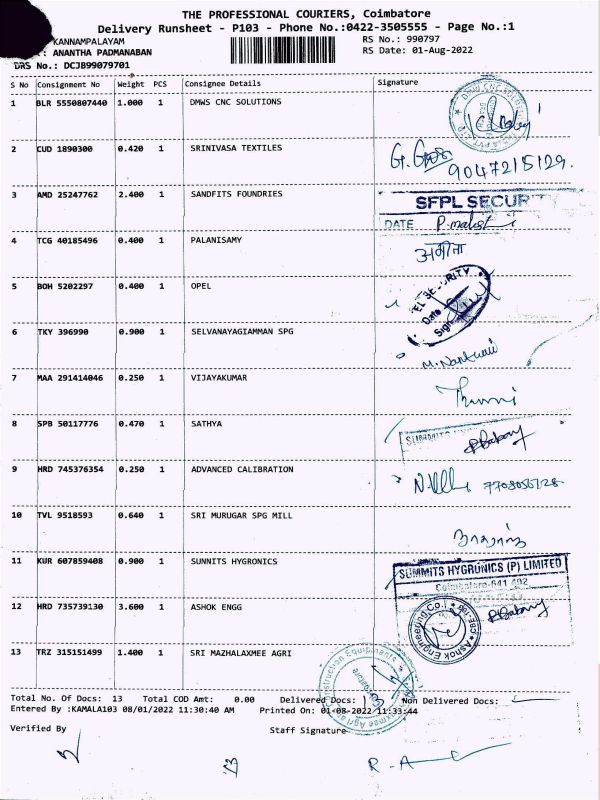 THE PROFESSIONAL COURIERS, Coimbatore
Delivery Runsheet - P103 - Phone No.:0422-3505555 - Page No.:1
KANNAMPALAYAM RS No.: 990797
: ANANTHA PADMANABAN RS Date: 01-Aug-2022
DRS No.: DCJB99079701
S No Consignment No Weight PCS Consignee Details Signature
1 BLR 5550807440 1.000 1 DMWS CNC SOLUTIONS
2 CUD 1890300 0.420 1 SRINIVASA TEXTILES
9047215129.
3 AMD 25247762 2.400 1 SANDFITS FOUNDRIES
SFPL SECURITY
DATE
4 TCG 40185496 0.400 1 PALANISAMY
5 BOH 5202297 0.400 1 OPEL
EL SECURITY
Date
Sign
6 TKY 396990 0.900 1 SELVANAYAGIAMMAN SPG
7 MAA 291414046 0.250 1 VIJAYAKUMAR
8 SPB 50117776 0.470 1 SATHYA
SUMMITS
9 HRD 745376354 0.250 1 ADVANCED CALIBRATION
10 TVL 9518593 0.640 1 SRI MURUGAR SPG MILL
11 KUR 607859408 0.900 1 SUNNITS HYGRONICS
SUMMITS HYGRONICS (P) LIMITED
Coimbatore-641 402
12 HRD 735739130 3.600 1 ASHOK ENGG
Ashok Engineering Co.
13 TRZ 315151499 1.400 1 SRI MAZHALAXMEE AGRI
Construction Equipments
Total No. Of Docs: 13 Total COD Amt: 0.00 Delivered Docs: 13 Non Delivered Docs:
Entered By :KAMALA103 08/01/2022 11:30:40 AM Printed On: 01-08-2022 11:33:44
Verified By Staff Signature
13 R-A